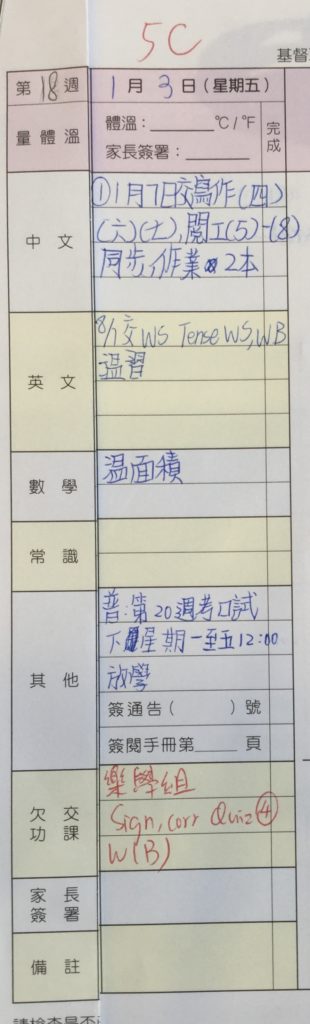 5C
基督
第18週
1月3日(星期五)
量體溫
體溫：______°C/°F
家長簽署：______
完成
中文
①1月7日交寫作(四)
(六)(七),閱工(5)-(8)
同步,作業 2本
英文
8/1交WS Tense WS,WB
温習
數學
温面積
常識
其他
普:第20週考口試
下星期一至五12:00
放學
簽通告(　　　)號
簽閱手冊第____頁
欠交功課
樂學組
Sign, corr Quiz④
W(B)
家長簽署
備註